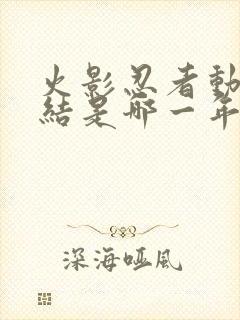 火影忍者動
結是哪一年
深海啞風